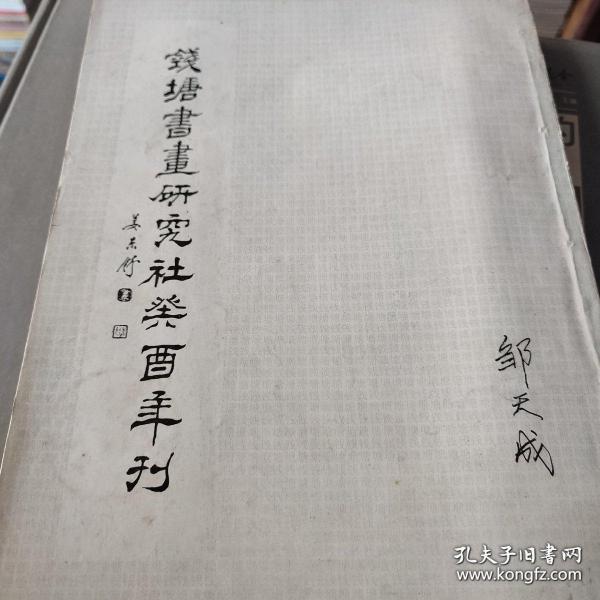 錢塘書畫研究社癸酉年刊
姜东舒
邹天成
孔夫子旧書网
www.kongfz.com